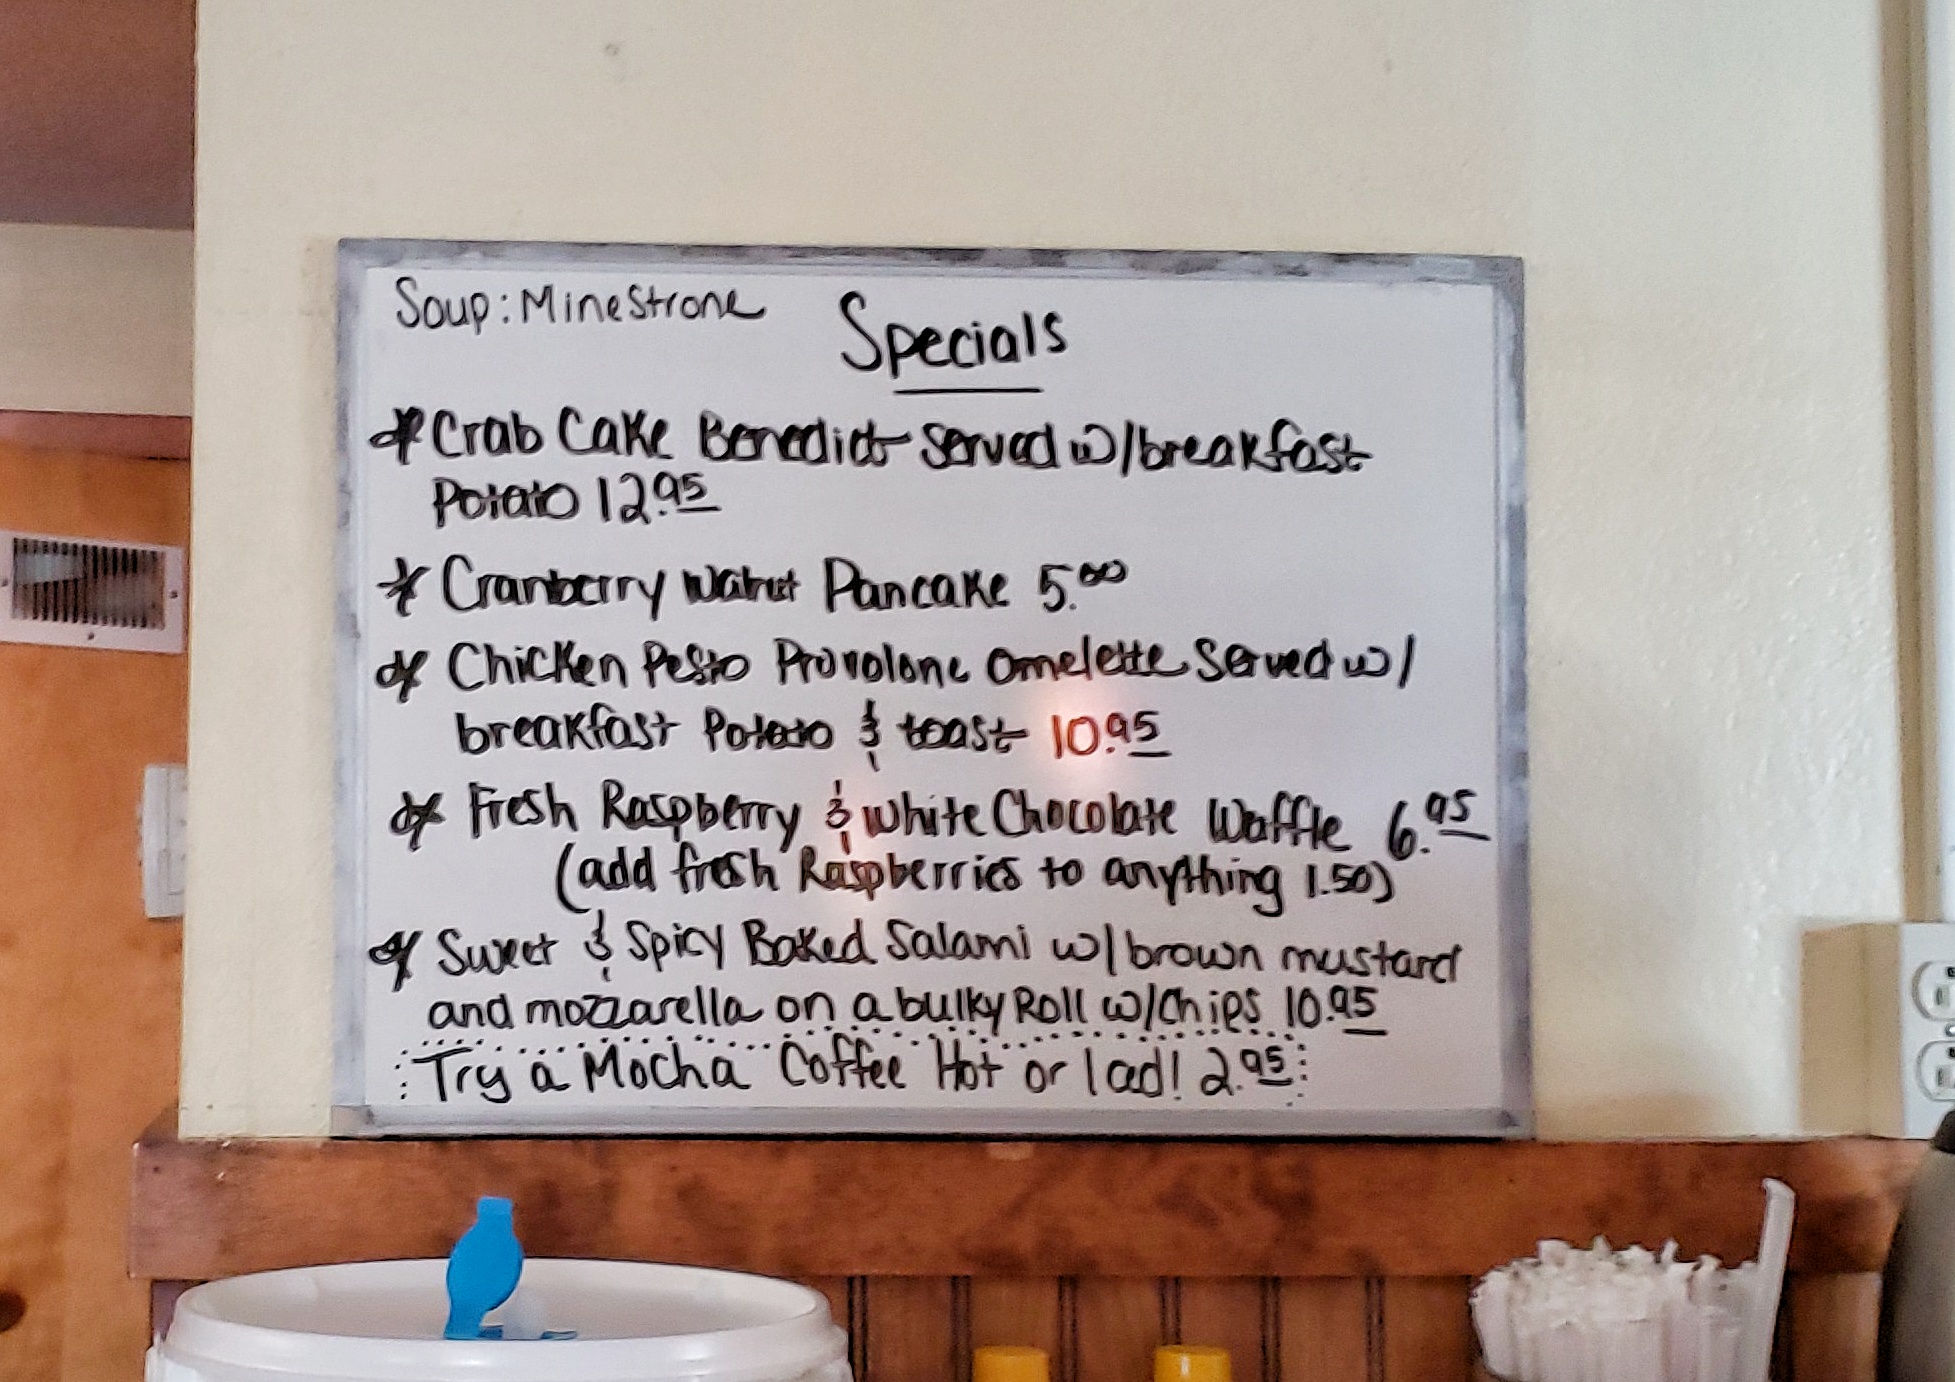 Soup: Minestrone
Specials
* Crab Cake Benedict served w/breakfast
Potato 12.95
* Cranberry Walnut Pancake 5.00
* Chicken Pesto Provolone Omelette Served w/
breakfast Potato & toast 10.95
* Fresh Raspberry & White Chocolate Waffle 6.95
(add fresh Raspberries to anything 1.50)
* Sweet & Spicy Baked Salami w/brown mustard
and mozzarella on a bulky Roll w/Chips 10.95
Try a Mocha Coffee Hot or Iced! 2.95